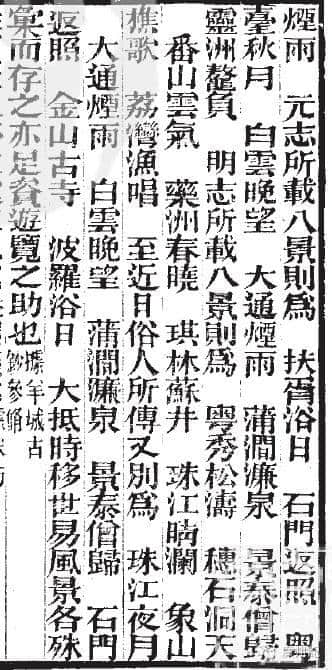 煙雨　元志所載八景則為　扶胥浴日　石門返照　粵
臺秋月　白雲晚望　大通煙雨　蒲澗濂泉　景泰僧歸
靈洲鼇負　明志所載八景則為　粵秀松濤　穗石洞天
番山雲氣　藥洲春曉　琪林蘇井　珠江晴瀾　象山
樵歌　荔灣漁唱　至近日俗人所傳又別為　珠江夜月
大通煙雨　白雲晚望　蒲澗濂泉　景泰僧歸　石門
返照　金山古寺　波羅浴日　大抵時移世易風景各殊
彙而存之亦足資遊覽之助也據羊城古鈔參脩